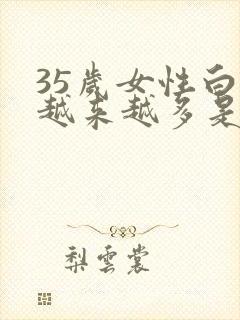 35歲女性白
越來越多是
梨雲裳